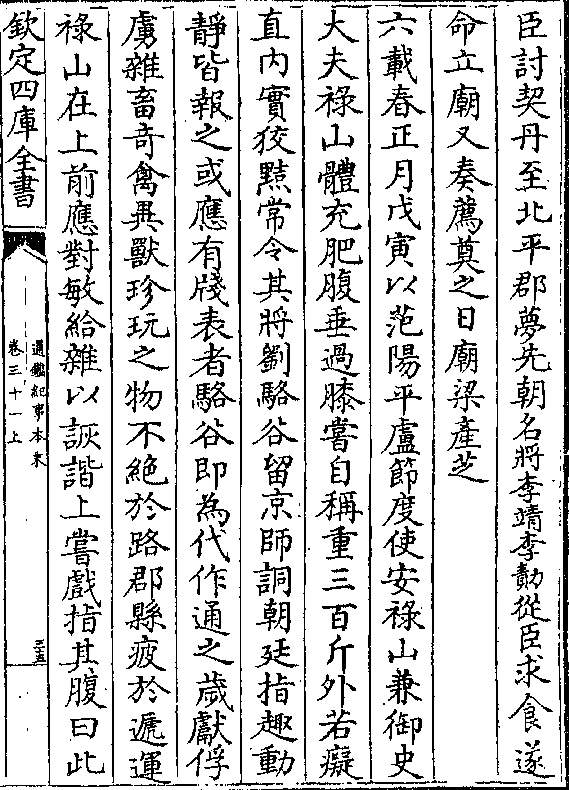 臣討契丹至北平郡夢先朝名將李靖李勣從臣求食遂
命立廟又奏薦奠之日廟梁產芝
六載春正月戊寅以范陽平盧節度使安祿山兼御史
大夫祿山體充肥腹垂過膝嘗自稱重三百斤外若癡
直内實狡黠常令其將劉駱谷留京師詗朝廷指趣動
靜皆報之或應有牋表者駱谷即為代作通之歲獻俘
虜雜畜奇禽異獸珍玩之物不絕於路郡縣疲於遞運
祿山在上前應對敏給雜以詼諧上嘗戲指其腹曰此
欽定四庫全書
通鑑紀事本末
卷三十一上
三五